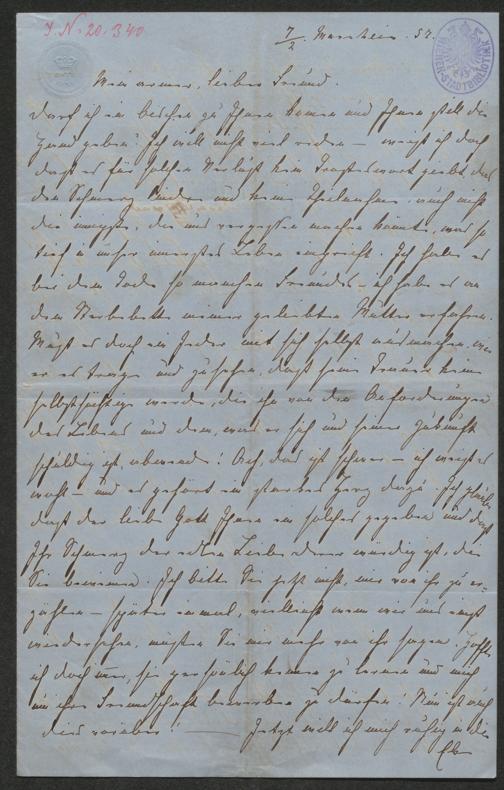 J. N. 20.340
7/2. Mannheim. 57.
Mein armer, lieber Freund.
Darf ich ein bischen zu Ihnen kommen und Ihnen still die
Hand geben? Ich will nicht viel reden – weiß ich doch
daß es für solchen Verlust kein Trosteswort giebt, das
den Schmerz lindre und keine Theilnahme, auch nicht
die innigste, die uns vergessen machen könnte, was so
tief in unser innerstes Leben eingreift. Ich habe es
bei dem Tode so manchen Freundes – ich habe es an
dem Sterbebette meiner geliebten Mutter erfahren.
Muß es doch ein Jeder mit sich selbst ausmachen, wie
er es trage und zusehen, daß seine Trauer keine
selbstsüchtige werde, die ihn von den Anforderungen
des Lebens und dem, was er sich und seiner Zukunft
schuldig ist, abwende! Ach, das ist schwer – ich weiß es
wohl – und es gehört ein starkes Herz dazu. Ich glaube
daß der liebe Gott Ihnen ein solches gegeben und daß
Ihr Schmerz der edlen Liebe derer würdig ist, die
Sie beweinen. Ich bitte Sie jetzt nicht, mir von ihr zu er-
zählen – später einmal, vielleicht wenn wir uns einst
wiedersehen, müssen Sie mir mehr von ihr sagen. Hoffte
ich doch immer, sie persönlich kennen zu lernen und mich
um ihre Freundschaft bewerben zu dürfen. Nun ist auch
dies vorüber! — Jetzt will ich mich ruhig in die